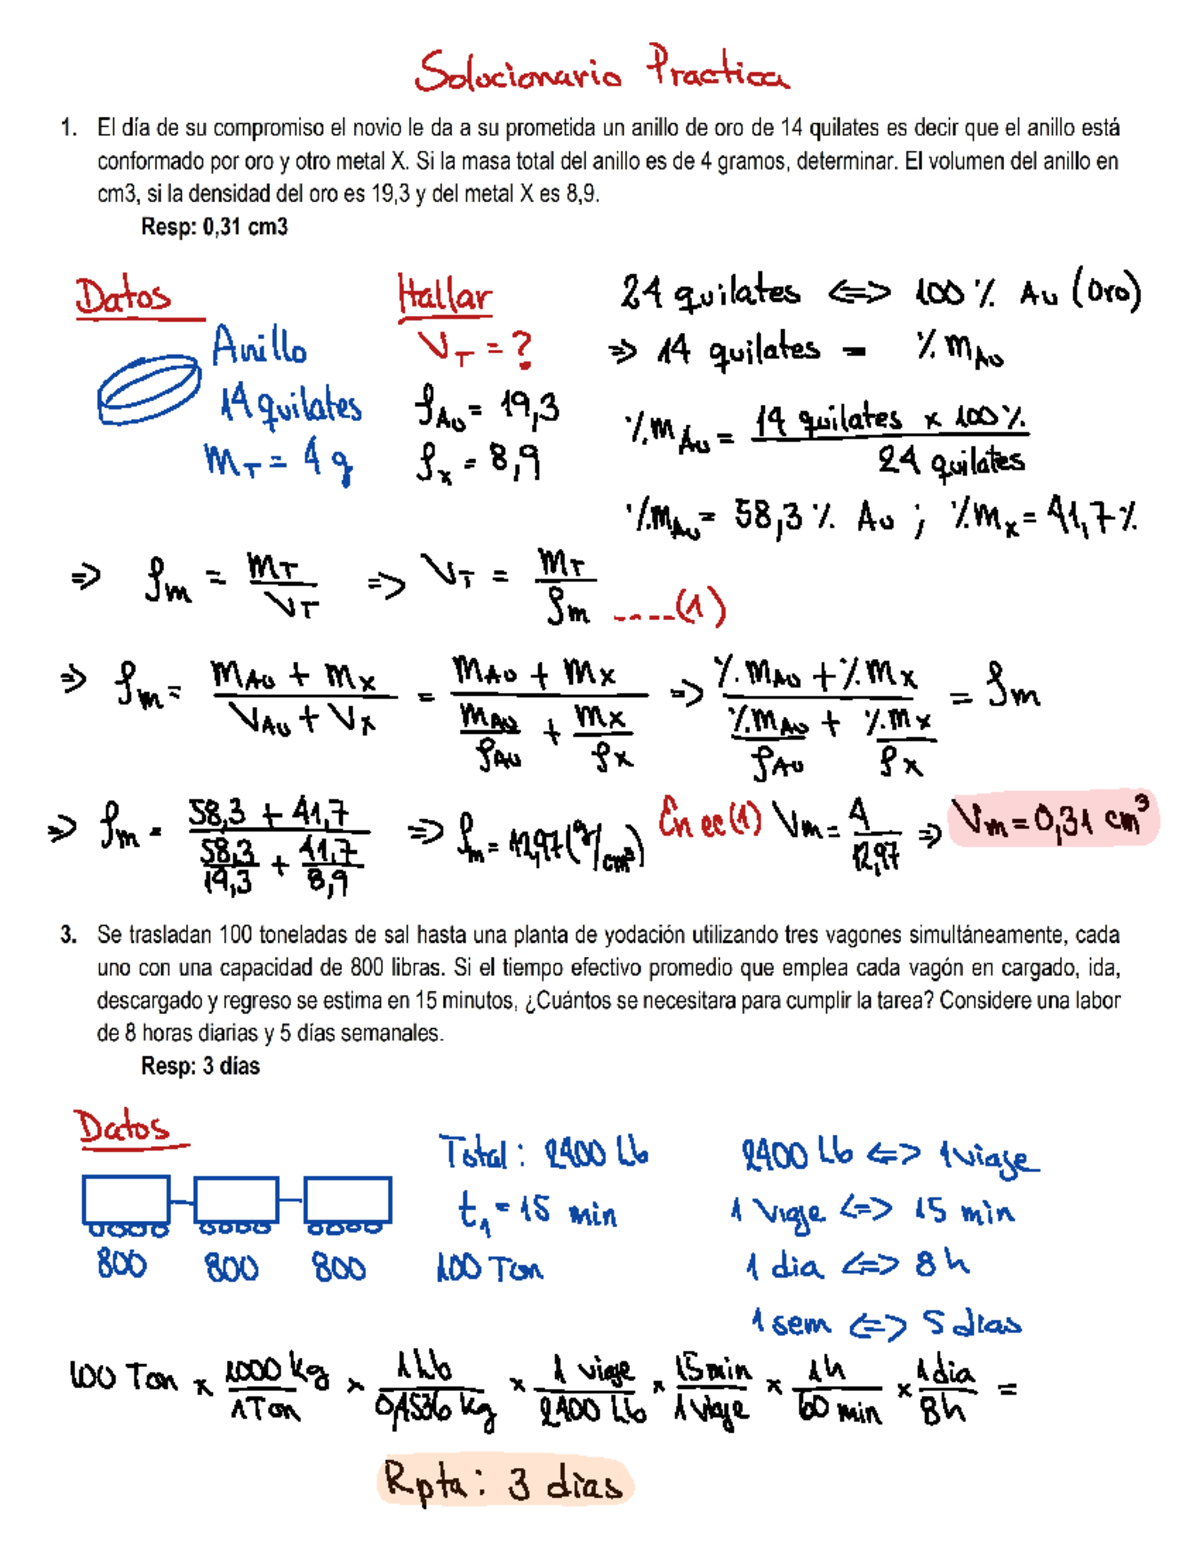 Solucionario Practica
1. El día de su compromiso el novio le da a su prometida un anillo de oro de 14 quilates es decir que el anillo está
conformado por oro y otro metal X. Si la masa total del anillo es de 4 gramos, determinar. El volumen del anillo en
cm3, si la densidad del oro es 19,3 y del metal X es 8,9.
Resp: 0,31 cm3
Datos
Anillo
14 quilates
m_T = 4 g
Hallar
V_T = ?
ρ_Au = 19,3
ρ_x = 8,9
24 quilates <=> 100 % Au (Oro)
=> 14 quilates = % m_Au
% m_Au = (14 quilates x 100 %) / (24 quilates)
% m_Au = 58,3 % Au ; % m_x = 41,7 %
=> ρ_m = m_T / V_T => V_T = m_T / ρ_m ----(1)
=> ρ_m = (m_Au + m_x) / (V_Au + V_x) = (m_Au + m_x) / (m_Au/ρ_Au + m_x/ρ_x) => (% m_Au + % m_x) / (% m_Au/ρ_Au + % m_x/ρ_x) = ρ_m
=> ρ_m = (58,3 + 41,7) / (58,3/19,3 + 41,7/8,9) => ρ_m = 12,97 (g/cm³) En ec (1) V_m = 4 / 12,97 => V_m = 0,31 cm³
3. Se trasladan 100 toneladas de sal hasta una planta de yodación utilizando tres vagones simultáneamente, cada
uno con una capacidad de 800 libras. Si el tiempo efectivo promedio que emplea cada vagón en cargado, ida,
descargado y regreso se estima en 15 minutos, ¿Cuántos se necesitara para cumplir la tarea? Considere una labor
de 8 horas diarias y 5 días semanales.
Resp: 3 días
Datos
800 800 800
Total : 2400 Lb
t_1 = 15 min
100 Ton
2400 Lb <=> 1 viaje
1 viaje <=> 15 min
1 dia <=> 8 h
1 sem <=> 5 dias
100 Ton x 1000 kg / 1 Ton x 1 Lb / 0,4536 kg x 1 viaje / 2400 Lb x 15 min / 1 viaje x 1 h / 60 min x 1 dia / 8 h =
Rpta : 3 dias